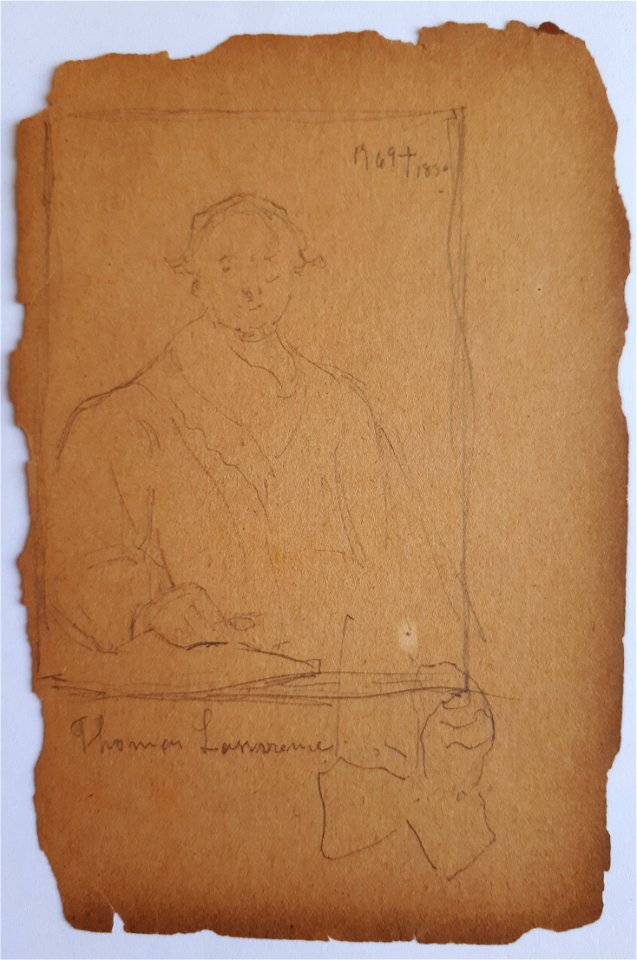 1769+1830
Thomas Lawrence